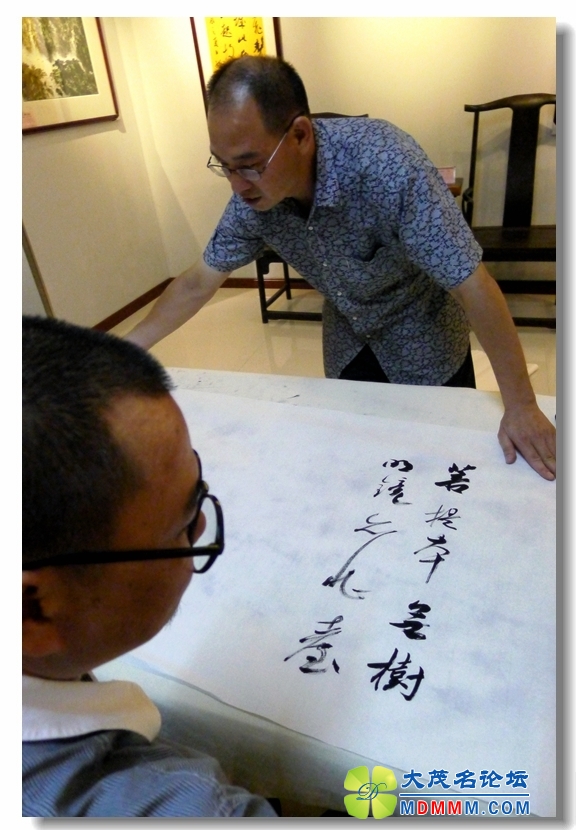 菩提本無樹
明鏡亦非臺
大茂名论坛
MDMMM.COM